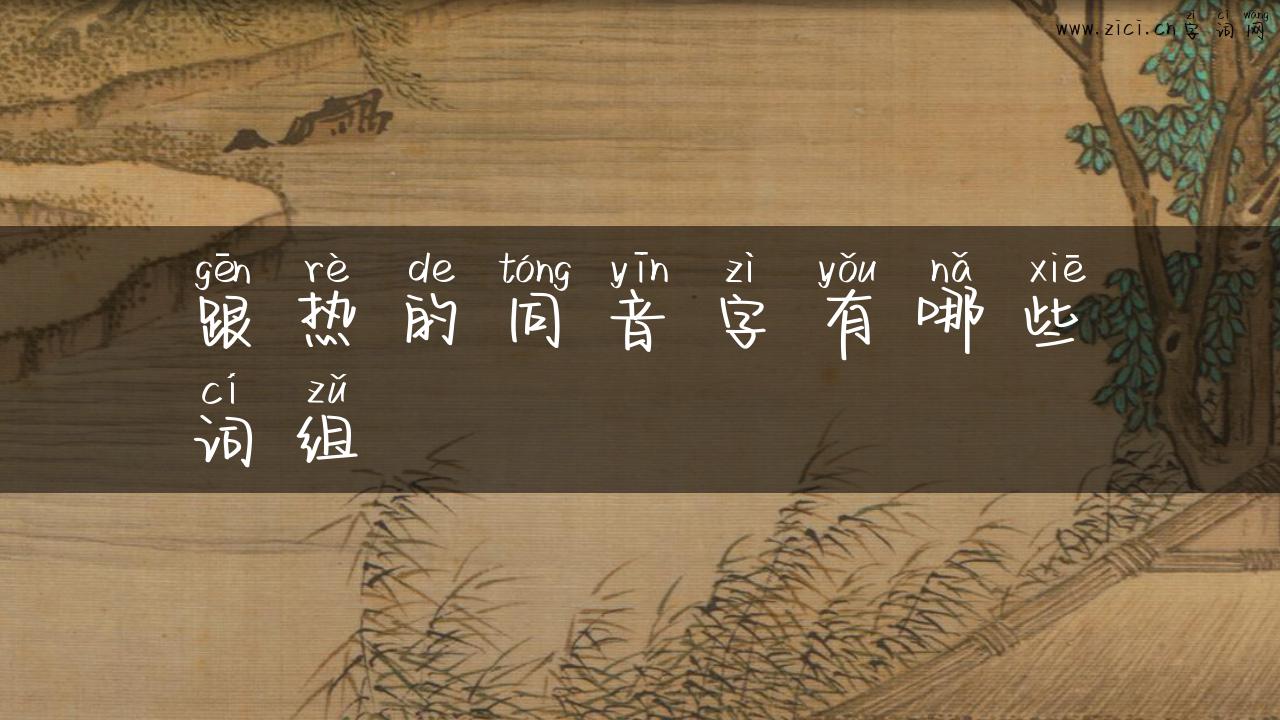 zì cí wǎng
www.zici.cn字词网
gēn rè de tóng yīn zì yǒu nǎ xiē
跟热的同音字有哪些
cí zǔ
词组